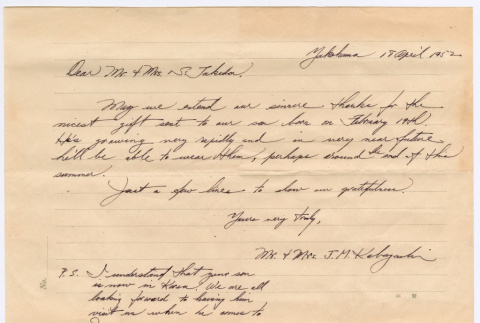 Yokohama 18 April 1952
Dear Mr. & Mrs. S. Takeda.
May we extend our sincere thanks for the
nicest gift sent to our son born on February 19th.
He's growing very rapidly and in very near future
he'll be able to wear them, perhaps around the end of the
summer.
Just a few lines to show our gratefulness.
Yours very truly,
Mr. & Mrs. J.M. Kobayashi
P.S. I understand that your son
is now in Korea. We are all
looking forward to having him
visit us when he comes to
No.